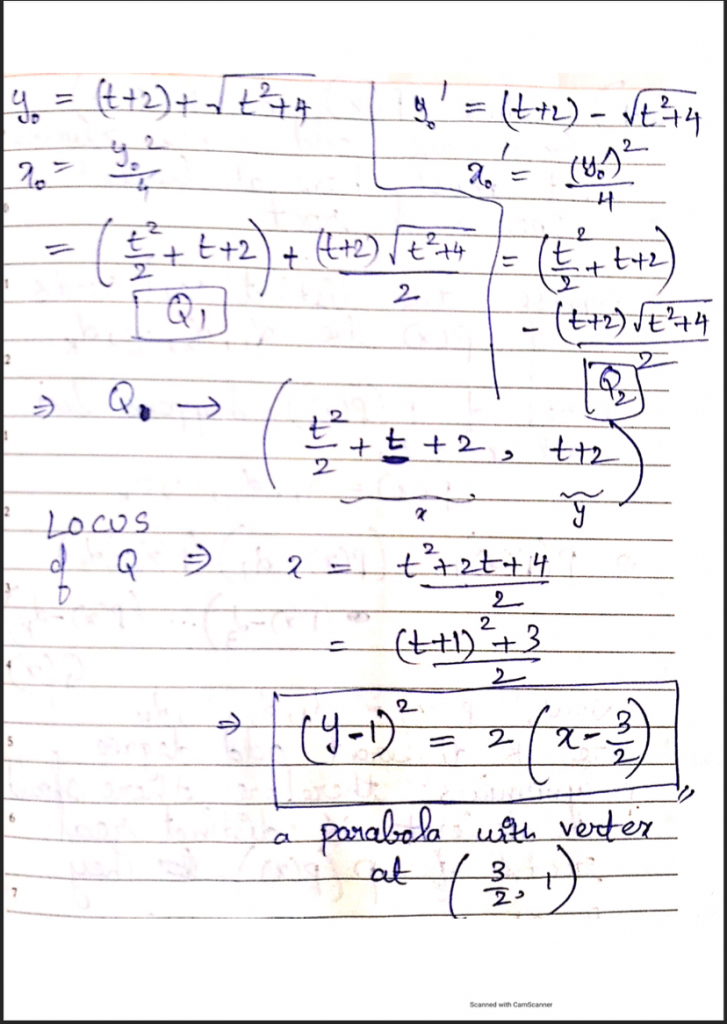 y₀ = (t+2) + √(t²+4)
x₀ = y₀²/4
= (t²/2 + t+2) + (t+2)√(t²+4)/2
Q₁
y₀' = (t+2) - √(t²+4)
x₀' = (y₀')²/4
= (t²/2 + t+2)
- (t+2)√(t²+4)/2
Q₂
⇒ Q → (t²/2 + t + 2, t+2)
x y
LOCUS
of Q ⇒ x = (t²+2t+4)/2
= ((t+1)²+3)/2
⇒ (y-1)² = 2(x - 3/2)
a parabola with vertex
at (3/2, 1)
Scanned with CamScanner